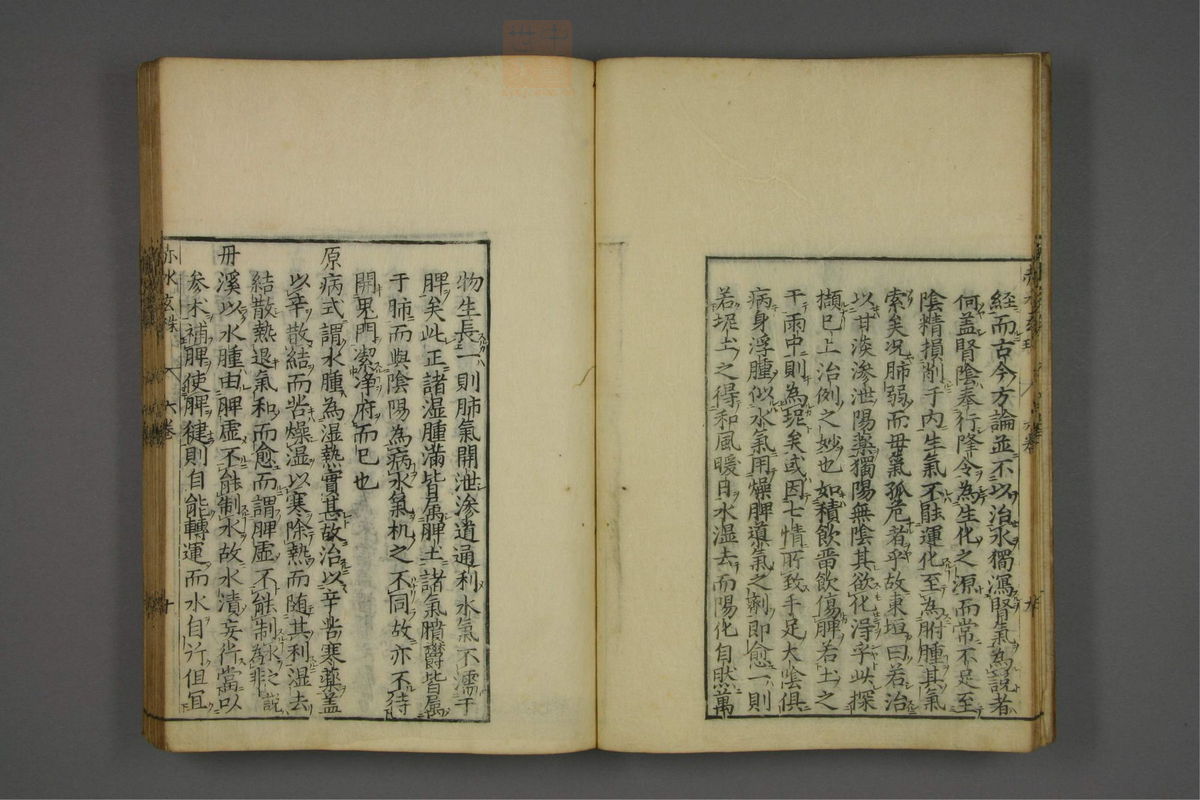 經而古今方論並不以治水獨瀉腎氣為說者
何蓋腎陰奉行降令為生化之源而常不足至
陰精損削于內生氣不能運化至為胕腫其氣
索矣况肺弱而毋氣孤危者乎故東垣曰若治
以甘淡滲泄陽藥獨陽無陰其欲化得乎此探
擷已上治例之妙也如積飲畱飲傷脾若土之
于雨中則為坭矣或因七情所致手足太陰俱
病身浮腫似水氣用燥脾道氣之劑即愈一則
若坭土之得和風暖日水湿去而陽化自然萬
物生長一則肺氣開泄滲道通利水氣不濡于
脾矣此正諸湿腫滿皆属脾土諸氣膹鬱皆属
于肺而與陰陽為病水氣机之不同故亦不待
開鬼門潔净府而已也
原病式謂水腫為湿熱實其故治以辛苦寒藥蓋
以辛散結而苦燥湿以寒除熱而随其利湿去
結散熱退氣和而愈而謂脾虚不能制水之說為非
丹溪以水腫由脾虚不能制水故水漬妄行當以
参术補脾使脾徤則自能轉運而水自行但宜
赤水玄珠
六卷
十